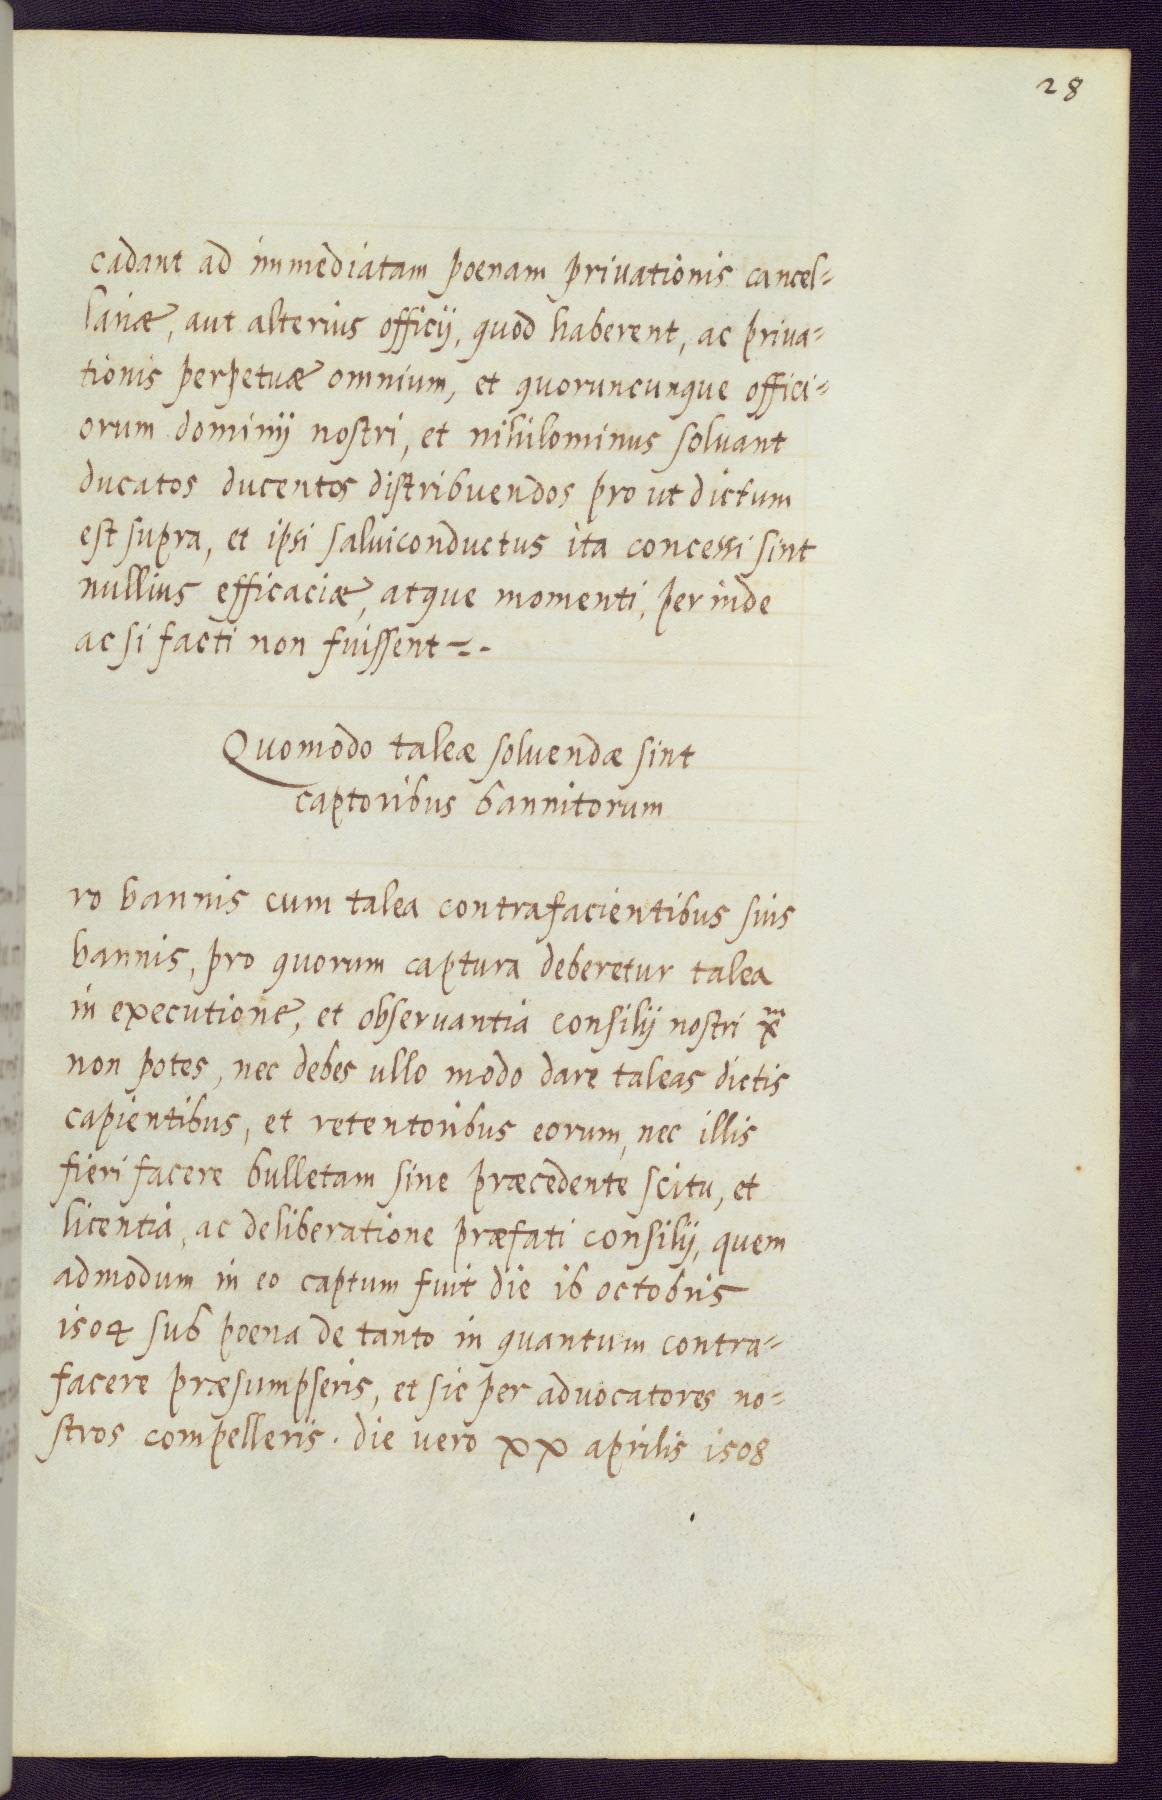 28
cadant ad immediatam poenam privationis cancel=
lariæ, aut alterius officij, quod haberent, ac priva=
tionis perpetuæ omnium, et quoruncunque offici=
orum dominij nostri, et nihilominus solvant
ducatos ducentos distribuendos pro ut dictum
est supra, et ipsi salviconductus ita concessi sint
nullius efficaciæ, atque momenti, per inde
ac si facti non fuissent =.-
Quomodo taleæ solvendæ sint
captoribus bannitorum
ro bannis cum talea contrafacientibus suis
bannis, pro quorum captura deberetur talea
in executione, et observantia consilij nostri xᵐ
non potes, nec debes ullo modo dare taleas dictis
capientibus, et retentoribus eorum, nec illis
fieri facere bulletam sine præcedente scitu, et
licentia, ac deliberatione præfati consilij, quem
admodum in eo captum fuit die 16 octobris
1504 sub poena de tanto in quantum contra=
facere præsumpseris, et sic per advocatores no=
stros compelleris. die vero xx aprilis 1508